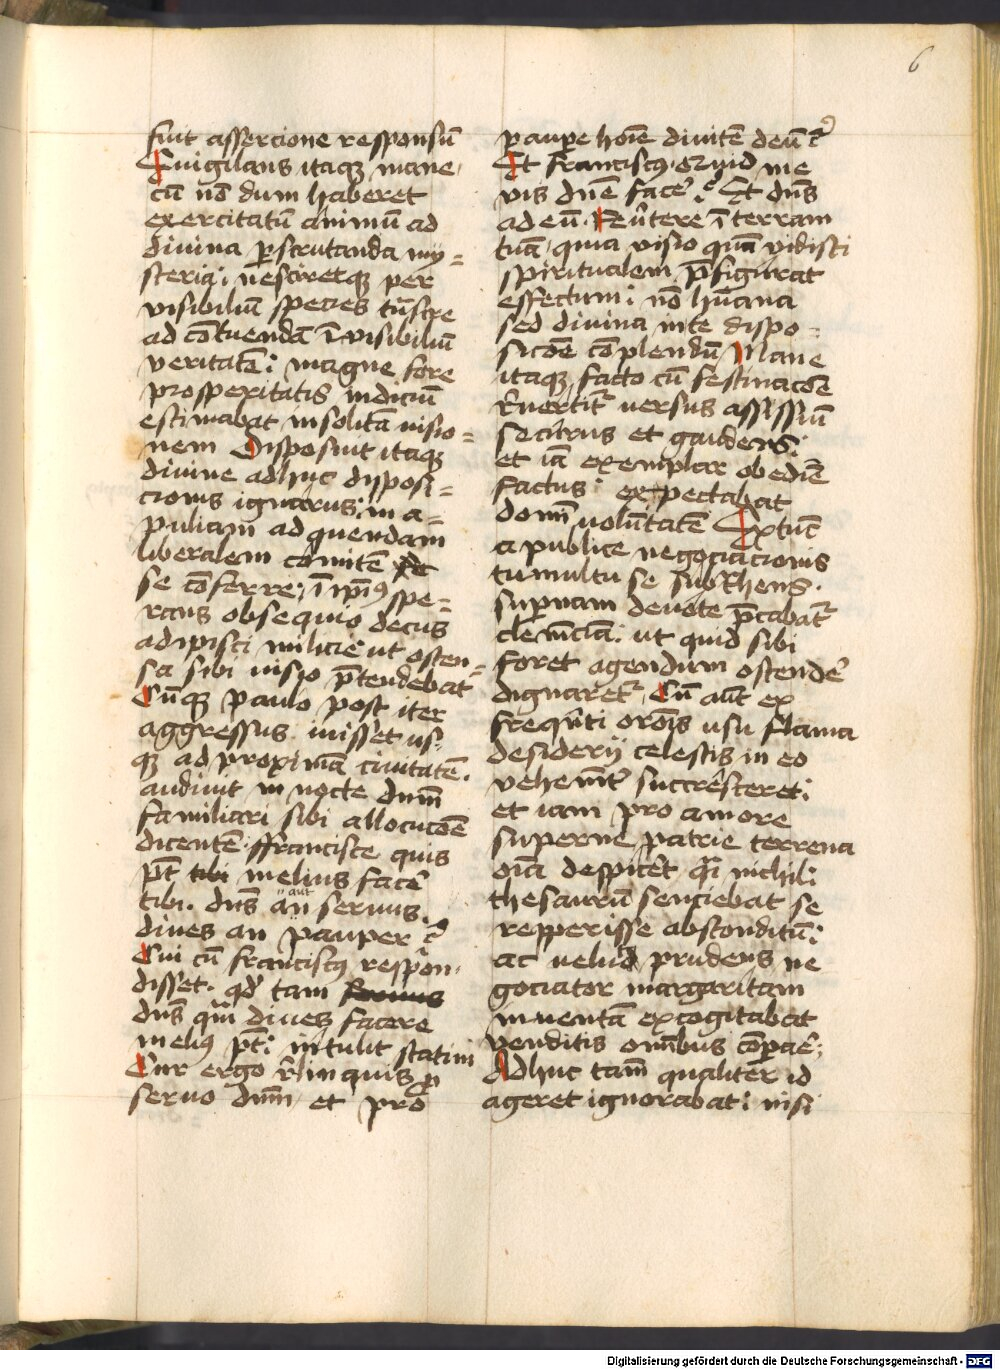 6
fuit assercione responsū
Euigilans itaqꝫ mane
cū nō dum haberet
exercitatū animū ad
diuina ꝑscrutanda my=
steria; nesciretqꝫ per
visibiliū species tūsire
ad cōtuendā īvisibiliū
veritatē; magne fore
prosperitatis indiciū
estimabat insolitā uisio=
nem Disposuit itaqꝫ
diuine adhuc disposi=
cionis ignarus; in a=
puliam ad quendam
liberalem comitē
se cōferre; ī ip̄iꝰ spe=
rans obsequio decus
adipisci milicie ut osten=
sa sibi uisio p̄tendebat
Cūqꝫ paulo post iter
aggressus iuisset us=
qꝫ ad proximā ciuitatē.
audiuit in nocte dn̄m
familiari sibi allocucōē
dicentē ffrancisce quis
pt̄ tibi melius facē
tibi. dn̄s an̄ aut seruus.
diues an pauper ?
Cui cū franciscꝰ respon=
disset. qd̓ tam seruus
dn̄s qm̄ diues facere
meliꝰ pt̄; intulit statim
Cur ergo r̄linquis ꝓ
seruo dn̄m, et pro
paupe hoīe diuitē deū ?
Et franciscꝰ. Quid me
vis dn̄e facē ? Et dn̄s
ad eū. Reūtere ī terram
tuā, quia visio quā vidisti
spiritualem p̄figurat
effectum; nō hūana
sed diuina inte dispo=
sicōē cōplendū Mane
itaqꝫ facto cū festinacōē
r̄uertit̄ uersus assissiū
securus et gaudens;
et iā exemplar obediē
factus; expectabat
domī uolūtatē Extūc
a publice negociacionis
tumultu se subthens.
supnam deuote p̄cabat̄
clemēciā. ut quid sibi
foret agendum ostendē
dignaret̄ Cū aūt ex
freqūti orōīs usu flama
desiderij celestis in eo
vehemēt̄ succrēsceret;
et iam pro amore
superne patrie terrena
oīa despicēt qͣi nichil;
thesaurū senciebat se
repperisse absconditū;
ac uelud prudens ne
gociator margaritam
inuentā excogitabat
venditis omībus cōꝑaē;
Adhuc tam̄ qualiter id
ageret ignorabat; nisi
Digitalisierung gefördert durch die Deutsche Forschungsgemeinschaft - DFG